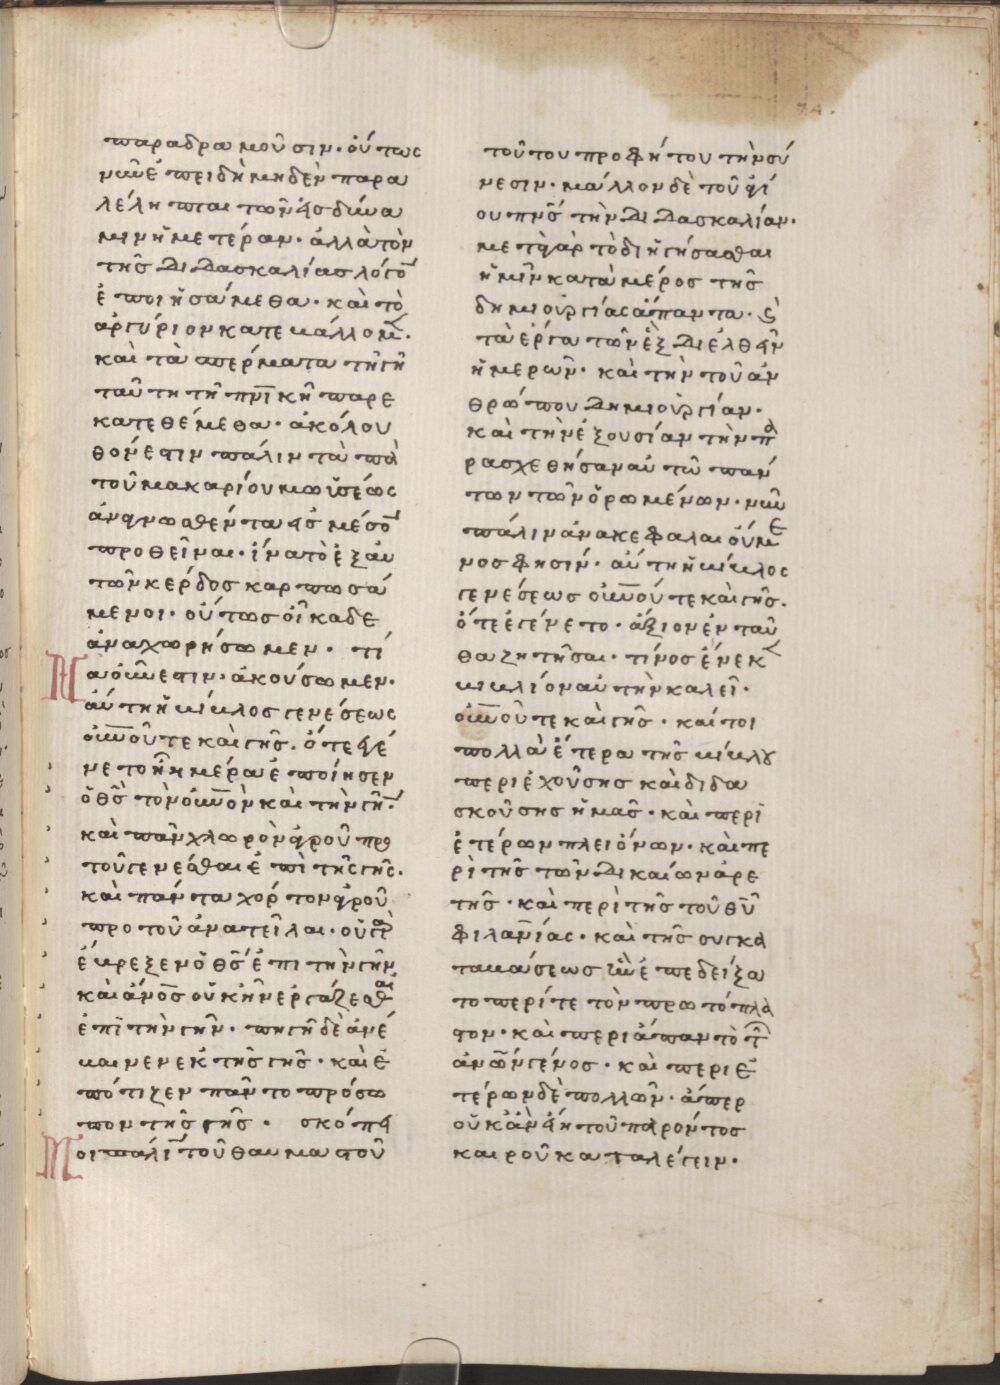 παραδραμοῦσιν· οὕτως
νῦν ἐπειδὴ μηδὲν παρα
λέλειπται τῶν εἰς δύνα
μιν ἡμετέραν· ἀλλὰ τὸν
τῆς διδασκαλίας λόγο̅
ἐποιησάμεθα· καὶ τὸ
ἀργύριον κατεβάλλομ̅·
καὶ τὰ σπέρματα τῆ γῆ
ταύτη τῆ πν̅ικῆ παρε
κατεθέμεθα· ἀκόλου
θόν ἐστιν πάλιν τὰ πα
τοῦ μακαρίου μωϋσέως
ἀναγνωσθέντα εἰς μέσο̅
προθεῖναι· ἵνα τὸ ἐξ αὐ
τῶν κέρδος καρπωσά
μενοι· οὕτως οἴκαδε
ἀναχωρήσωμεν· τί
να οὖν ἐστιν· ἀκούσωμεν·
αὕτη ἡ βίβλος γενέσεως
οὐ̅νοῦ τε καὶ γῆς· ὅτε ἐγέ
νετο ἧ ἡμέρα ἐποίησεν
ὁ θ̅ς τὸν οὐ̅νὸν καὶ τὴν γῆν·
καὶ πᾶν χλωρὸν ἀγροῦ πρὸ
τοῦ γενέσθαι ἐπὶ τῆς γῆς·
καὶ πάντα χόρτον ἀγροῦ
πρὸ τοῦ ἀνατεῖλαι· οὐ γὰρ
ἔβρεξεν ὁ θ̅ς ἐπι τὴν γῆν
καὶ ἄν̅ος οὐκ ἦν ἐργάζεσθαι
ἐπὶ τὴν γῆν· πηγὴ δὲ ἀνέ
βαινεν ἐκ τῆς γῆς· καὶ ἐ
πότιζεν πᾶν το πρόσω
πον τῆς γῆς· σκόπει
μοι πάλι̅ τοῦ θαυμαστοῦ
τούτου προφήτου τὴν σύ
νεσιν· μᾶλλον δὲ τοῦ ἁγί
ου πν̅ς τὴν διδασκαλίαν·
μετὰ γὰρ τὸ διηγήσασθαι
ἡμῖν κατὰ μέρος τῆς
δημιουργίας ἅπαντα· ϗ
τὰ ἔργα τῶν ἓξ διελθεῖν
ἡμερῶν· καὶ τὴν τοῦ ἀν
θρώπου δημιουργίαν·
καὶ τὴν ἐξουσίαν τὴν πα
ρασχεθήσαν αὐτῶ πάν
των τῶν ὁρωμένων· νῦν
πάλιν ἀνακεφαλαιούμε
νος φησίν· αὕτη ἡ βίβλος
γενέσεως οὐ̅νοῦ τε καὶ γῆς·
ὅτε ἐγένετο· ἄξιον ἐνταῦ
θα ζητῆσαι· τίνος ἕνεκ̅
βιβλίον αὐτὴν καλεῖ·
οὐ̅νοῦ τε καὶ γῆς· καίτοι
πολλὰ ἕτερα τῆς βίβλου
περιεχούσης καὶ διδα
σκούσης ἡμᾶς· καὶ περὶ
ἑτέρων πλειόνων· καὶ πε
ρὶ τῆς τῶν δικαίων ἀρε
τῆς· καὶ περὶ τῆς τοῦ θ̅υ
φιλαν̅ίας· καὶ τῆς συγκα
ταβάσεως ἣν ἐπεδείξα
το περί τε τὸν πρωτόπλα
στον· καὶ περι ἅπαν τὸ τῶ̅
ἀν̅ων γένος· καὶ περὶ ἑ
τέρων δὲ πολλῶν· ἅπερ
οὐκ ἂν εἴη τοῦ παρόντος
καιροῦ καταλέγειν·